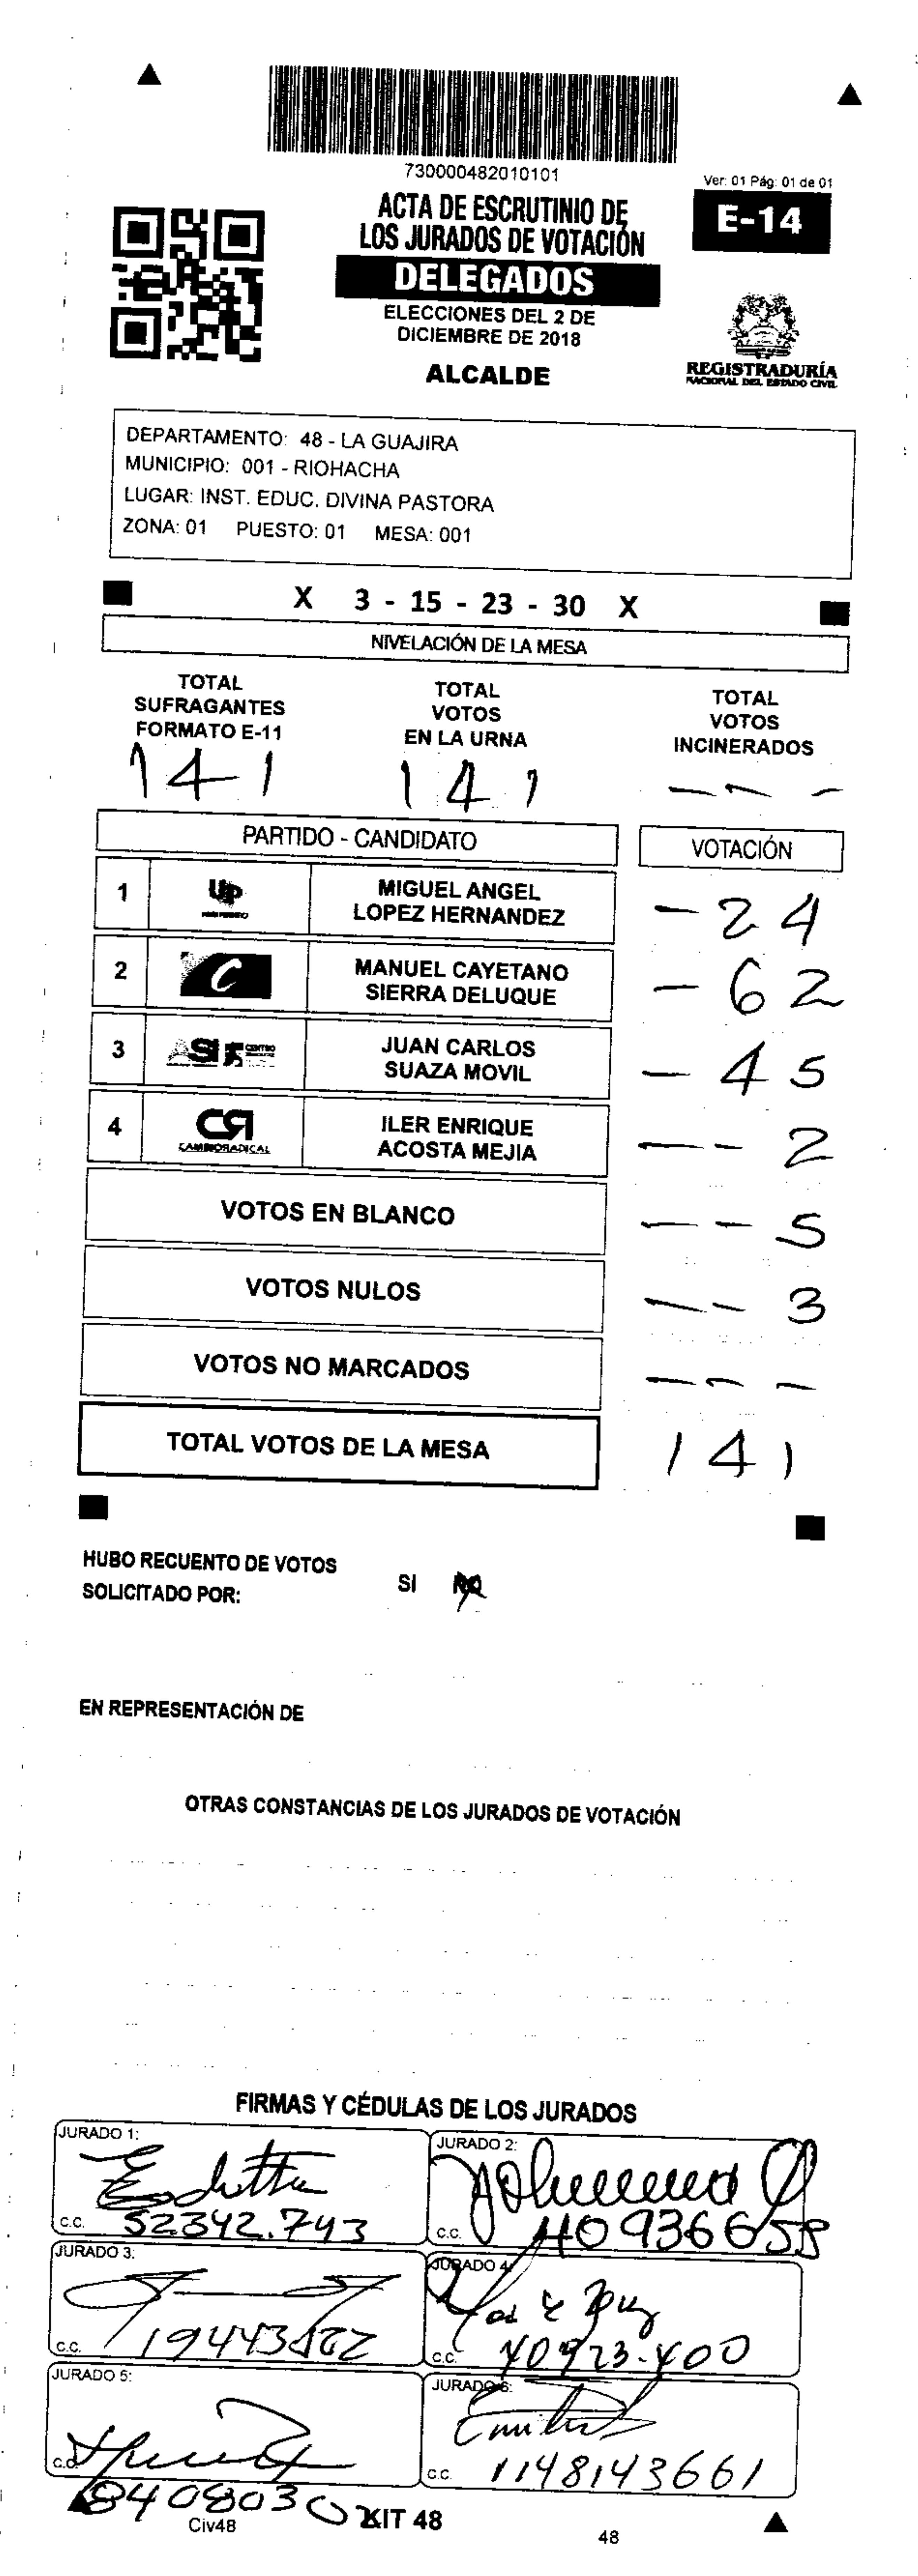 730000482010101
Ver: 01 Pág: 01 de 01
ACTA DE ESCRUTINIO DE
LOS JURADOS DE VOTACIÓN
E-14
DELEGADOS
ELECCIONES DEL 2 DE
DICIEMBRE DE 2018
ALCALDE
REGISTRADURÍA
NACIONAL DEL ESTADO CIVIL
DEPARTAMENTO: 48 - LA GUAJIRA
MUNICIPIO: 001 - RIOHACHA
LUGAR: INST. EDUC. DIVINA PASTORA
ZONA: 01 PUESTO: 01 MESA: 001
X 3 - 15 - 23 - 30 X
NIVELACIÓN DE LA MESA
TOTAL
SUFRAGANTES
FORMATO E-11
TOTAL
VOTOS
EN LA URNA
TOTAL
VOTOS
INCINERADOS
141 141 - - -
PARTIDO - CANDIDATO VOTACIÓN
1 Up MIGUEL ANGEL
LOPEZ HERNANDEZ - 24
2 C MANUEL CAYETANO
SIERRA DELUQUE - 62
3 ASI CENTRO JUAN CARLOS
SUAZA MOVIL - 45
4 CR CAMBIO RADICAL ILER ENRIQUE
ACOSTA MEJIA - - 2
VOTOS EN BLANCO - - 5
VOTOS NULOS - - 3
VOTOS NO MARCADOS - - -
TOTAL VOTOS DE LA MESA 141
HUBO RECUENTO DE VOTOS
SOLICITADO POR:
SI
EN REPRESENTACIÓN DE
OTRAS CONSTANCIAS DE LOS JURADOS DE VOTACIÓN
FIRMAS Y CÉDULAS DE LOS JURADOS
JURADO 1:
C.C. 52342.743
JURADO 2:
C.C. 40936658
JURADO 3:
C.C.
JURADO 4:
C.C. 40923.400
JURADO 5:
C.C.
JURADO 6:
C.C. 1148143661
Civ48
KIT 48
48